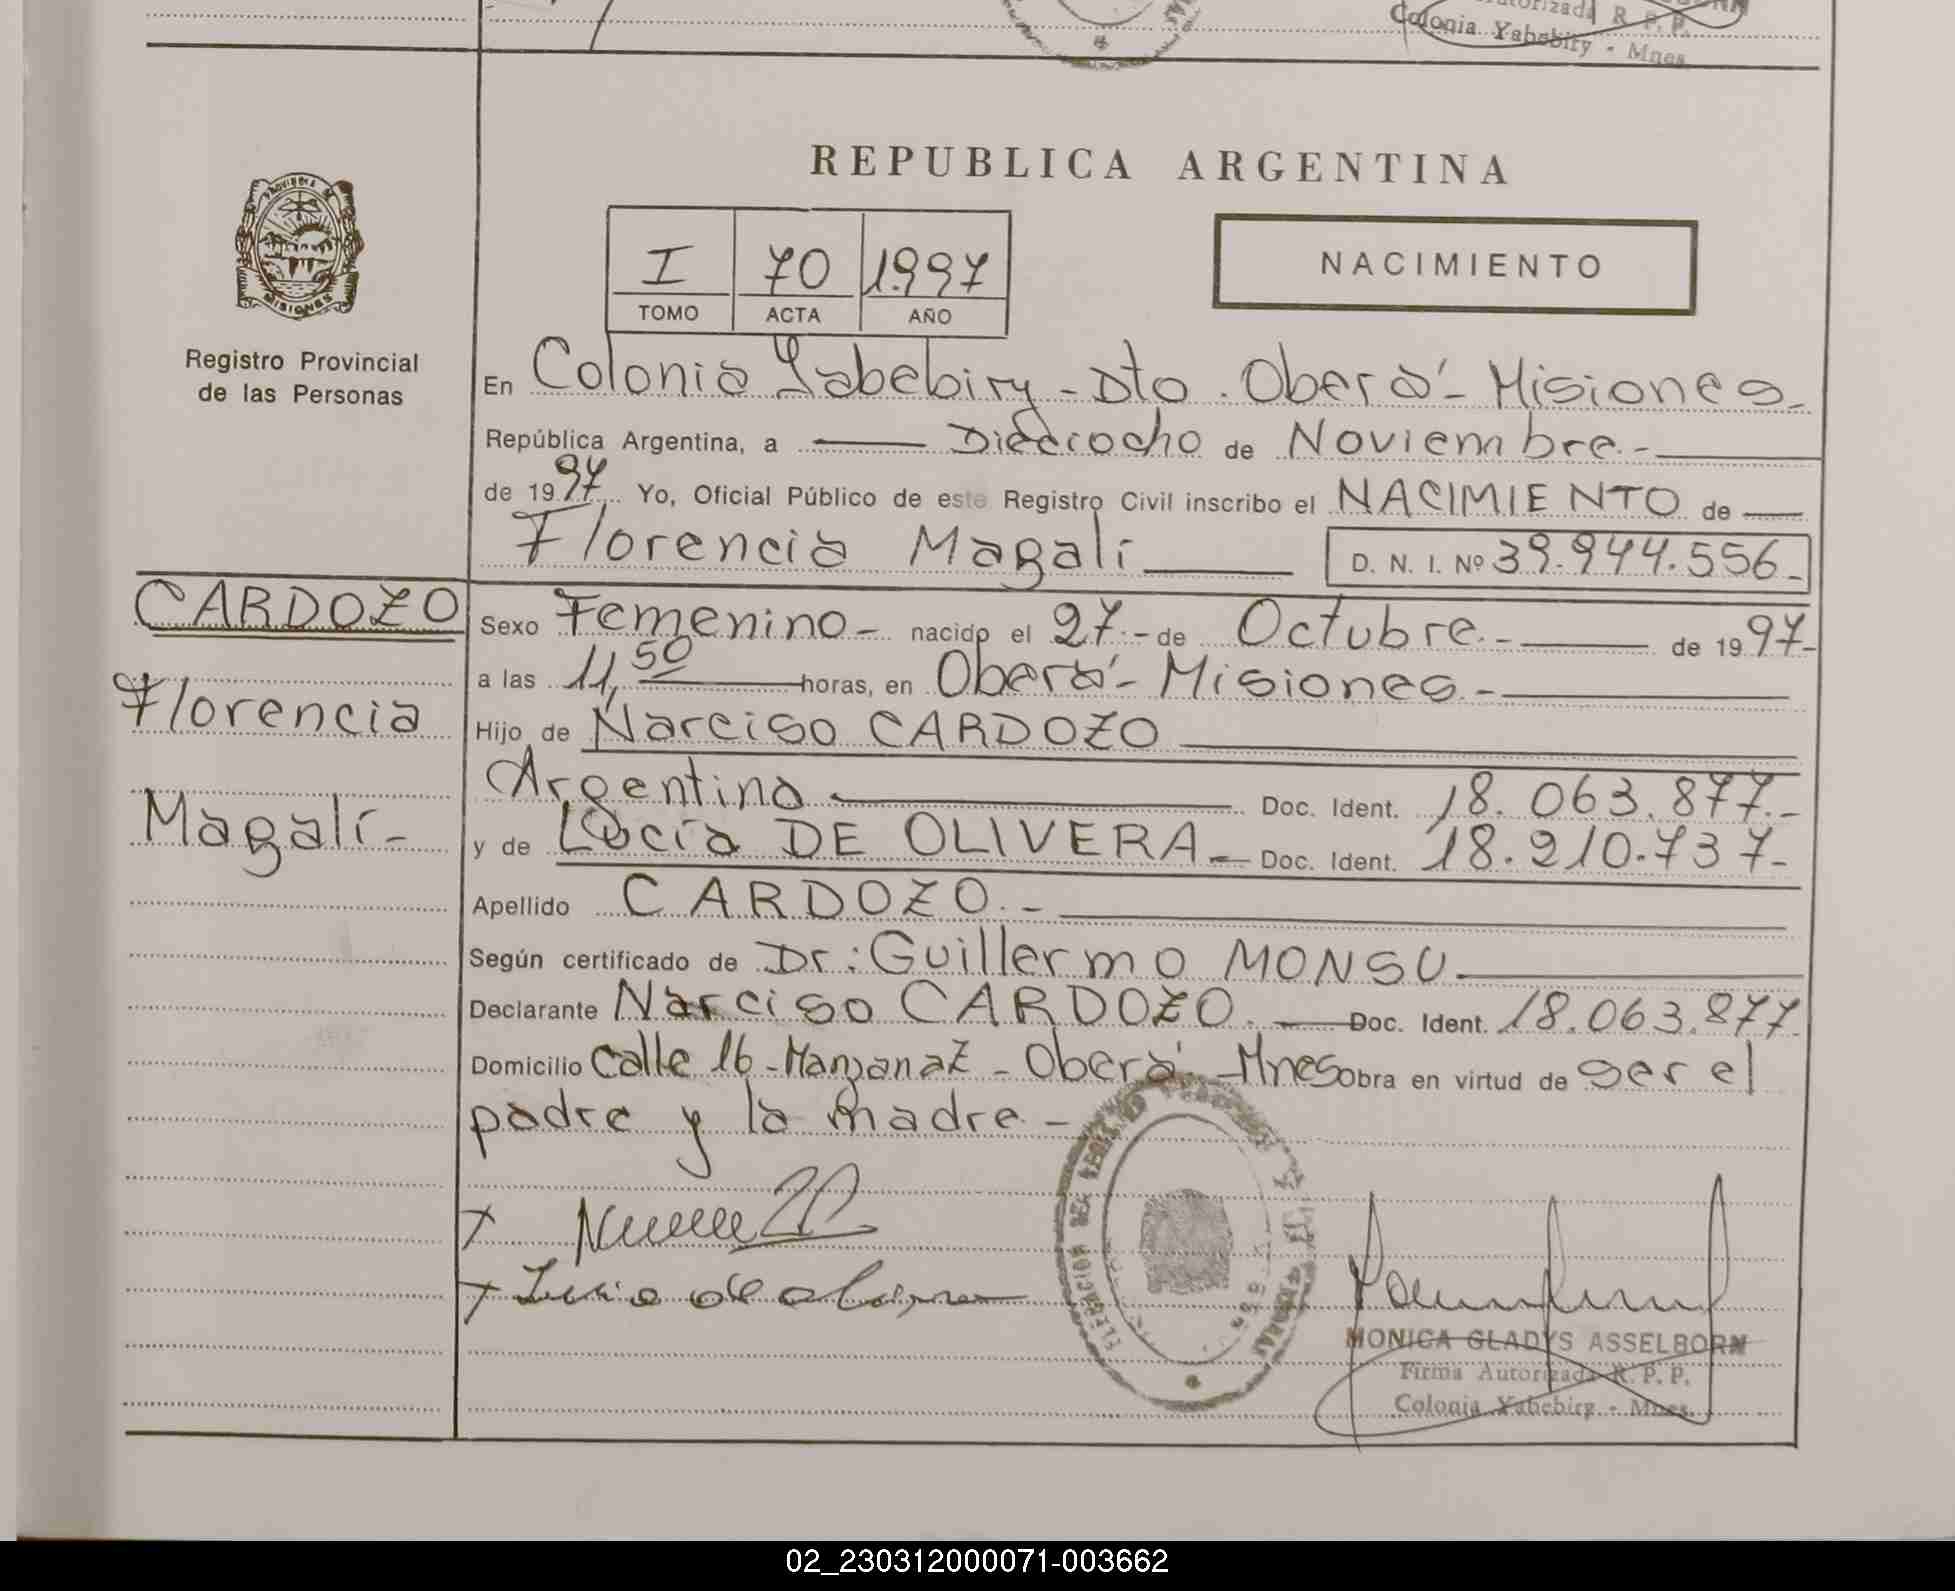 Autorizada R. P. P.
Colonia Yabebiry - Mnes.
REPUBLICA ARGENTINA
PROVINCIA DE
MISIONES
I 70 1.997
TOMO ACTA AÑO
NACIMIENTO
Registro Provincial
de las Personas
En Colonia Yabebiry - Dto. Oberá - Misiones -
República Argentina, a Dieciocho de Noviembre. -
de 1997 Yo, Oficial Público de este Registro Civil inscribo el NACIMIENTO de
Florencia Magalí D. N. I. Nº 39.944.556 -
CARDOZO
Sexo Femenino - nacido el 27 - de Octubre. - de 1997 -
Florencia
a las 11,50 horas, en Oberá - Misiones -
Hijo de Narciso CARDOZO
Magalí -
Argentino Doc. Ident. 18.063.877. -
y de Lucía DE OLIVERA - Doc. Ident. 18.210.737 -
Apellido CARDOZO. -
Según certificado de Dr: Guillermo MONSU
Declarante Narciso CARDOZO. Doc. Ident. 18.063.877
Domicilio Calle 16 - Manzana Z - Oberá - Mnes Obra en virtud de ser el
padre y la madre -
MONICA GLADYS ASSELBORN
Firma Autorizada R. P. P.
Colonia Yabebiry - Mnes.
02_230312000071-003662